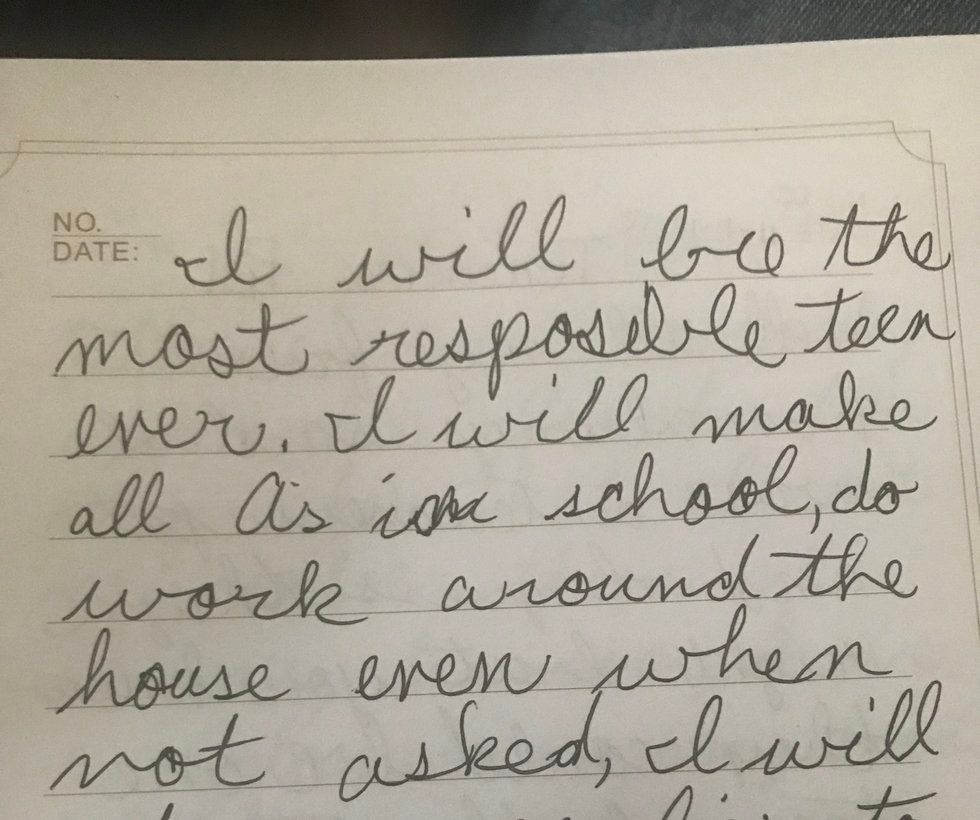 NO.
DATE:
I will be the
most resposible teen
ever. I will make
all A's in school, do
work around the
house even when
not asked, I will